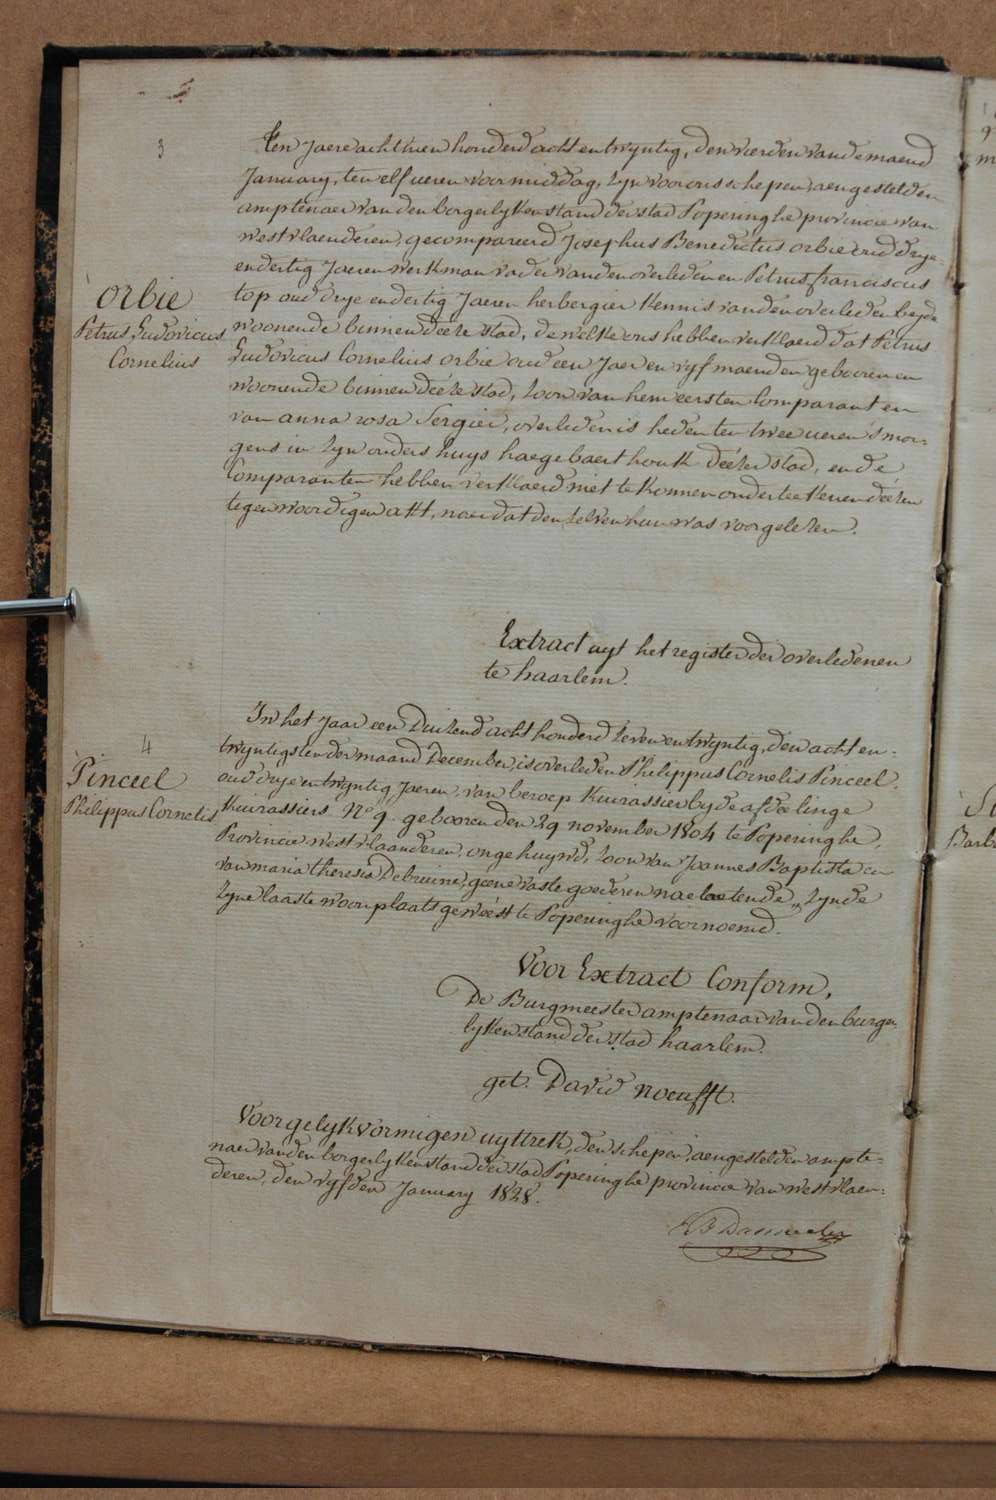 3
Ten Jaere achtthien honderd acht en twyntig, den vierden van de maend
January, ten elf ueren voormiddag, zyn voor ons schepen, aengestelden
amptenaer van den borgerlyken stand der stad Poperinghe provincie van
westvlaenderen, gecompareerd Josephus Benedictus orbie oud drye-
endertig Jaeren werkman vader van den overledenen Petrus franciscus
top oud drye endertig Jaeren herbergier kennis van den overleden beyde
woonende binnen deéze stad, de welke ons hebben verklaerd dat Petrus
Ludovicus Cornelius orbie oud een Jaer en vyf maenden gebooren en
woonende binnen deéze stad, zoon van hem eersten Comparant en
van anna rosa Sergier, overleden is heden ten twee ueren s'mor-
gens in zyn ouders huys haegebaert houk deézer stad, en de
Comparanten hebben verklaerd niet te konnen onderteekenen deézen
tegenwoordigen akt, naer dat den zelven hun was voorgelezen.
orbie
Petrus Ludovicus
Cornelius
Extract uyt het register der overledenen
te haarlem.
4
Pinceel
Philippus Cornelis
In het Jaar een Duizend acht honderd zeven en twyntig, den acht en-
twyntigsten der maand December, is overleden Philippus Cornelis Pinceel,
oud drye en twyntig Jaeren, van beroep Kuirassier by de afdeelinge
Kuirassiers N.o 9. gebooren den 29 november 1804 te Poperinghe,
Provincie westvlaanderen, ongehuywd, zoon van Joannes Baptista en
van maria theresia Debruine, geene vaste goederen naelaetende, zynde
zyne laaste woonplaats geweést te Poperinghe voornoemd.
Voor Extract Conform,
De Burgmeester amptenaar van den burger-
lyken stand der stad haarlem.
get. David noeufft.
Voor gelykvormigen uyttrek, den schepen, aengestelden ampte-
naer van den borgerlyken stand der stad Poperinghe provincie van westvlaen-
deren, den vyfden January 1828.